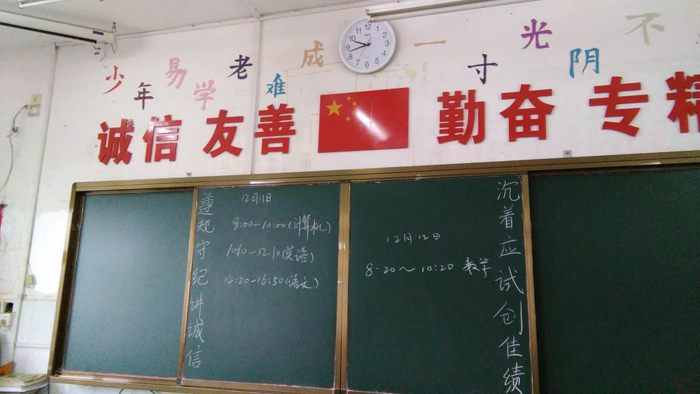 少年易学老难成 一寸光阴不
诚信 友善 勤奋 专精
遵规守纪讲诚信
12月1日
8:00-10:00(计算机)
10:10-12:10(英语)
14:20-16:50(语文)
12月12日
8:20~10:20 数学
沉着应试创佳绩